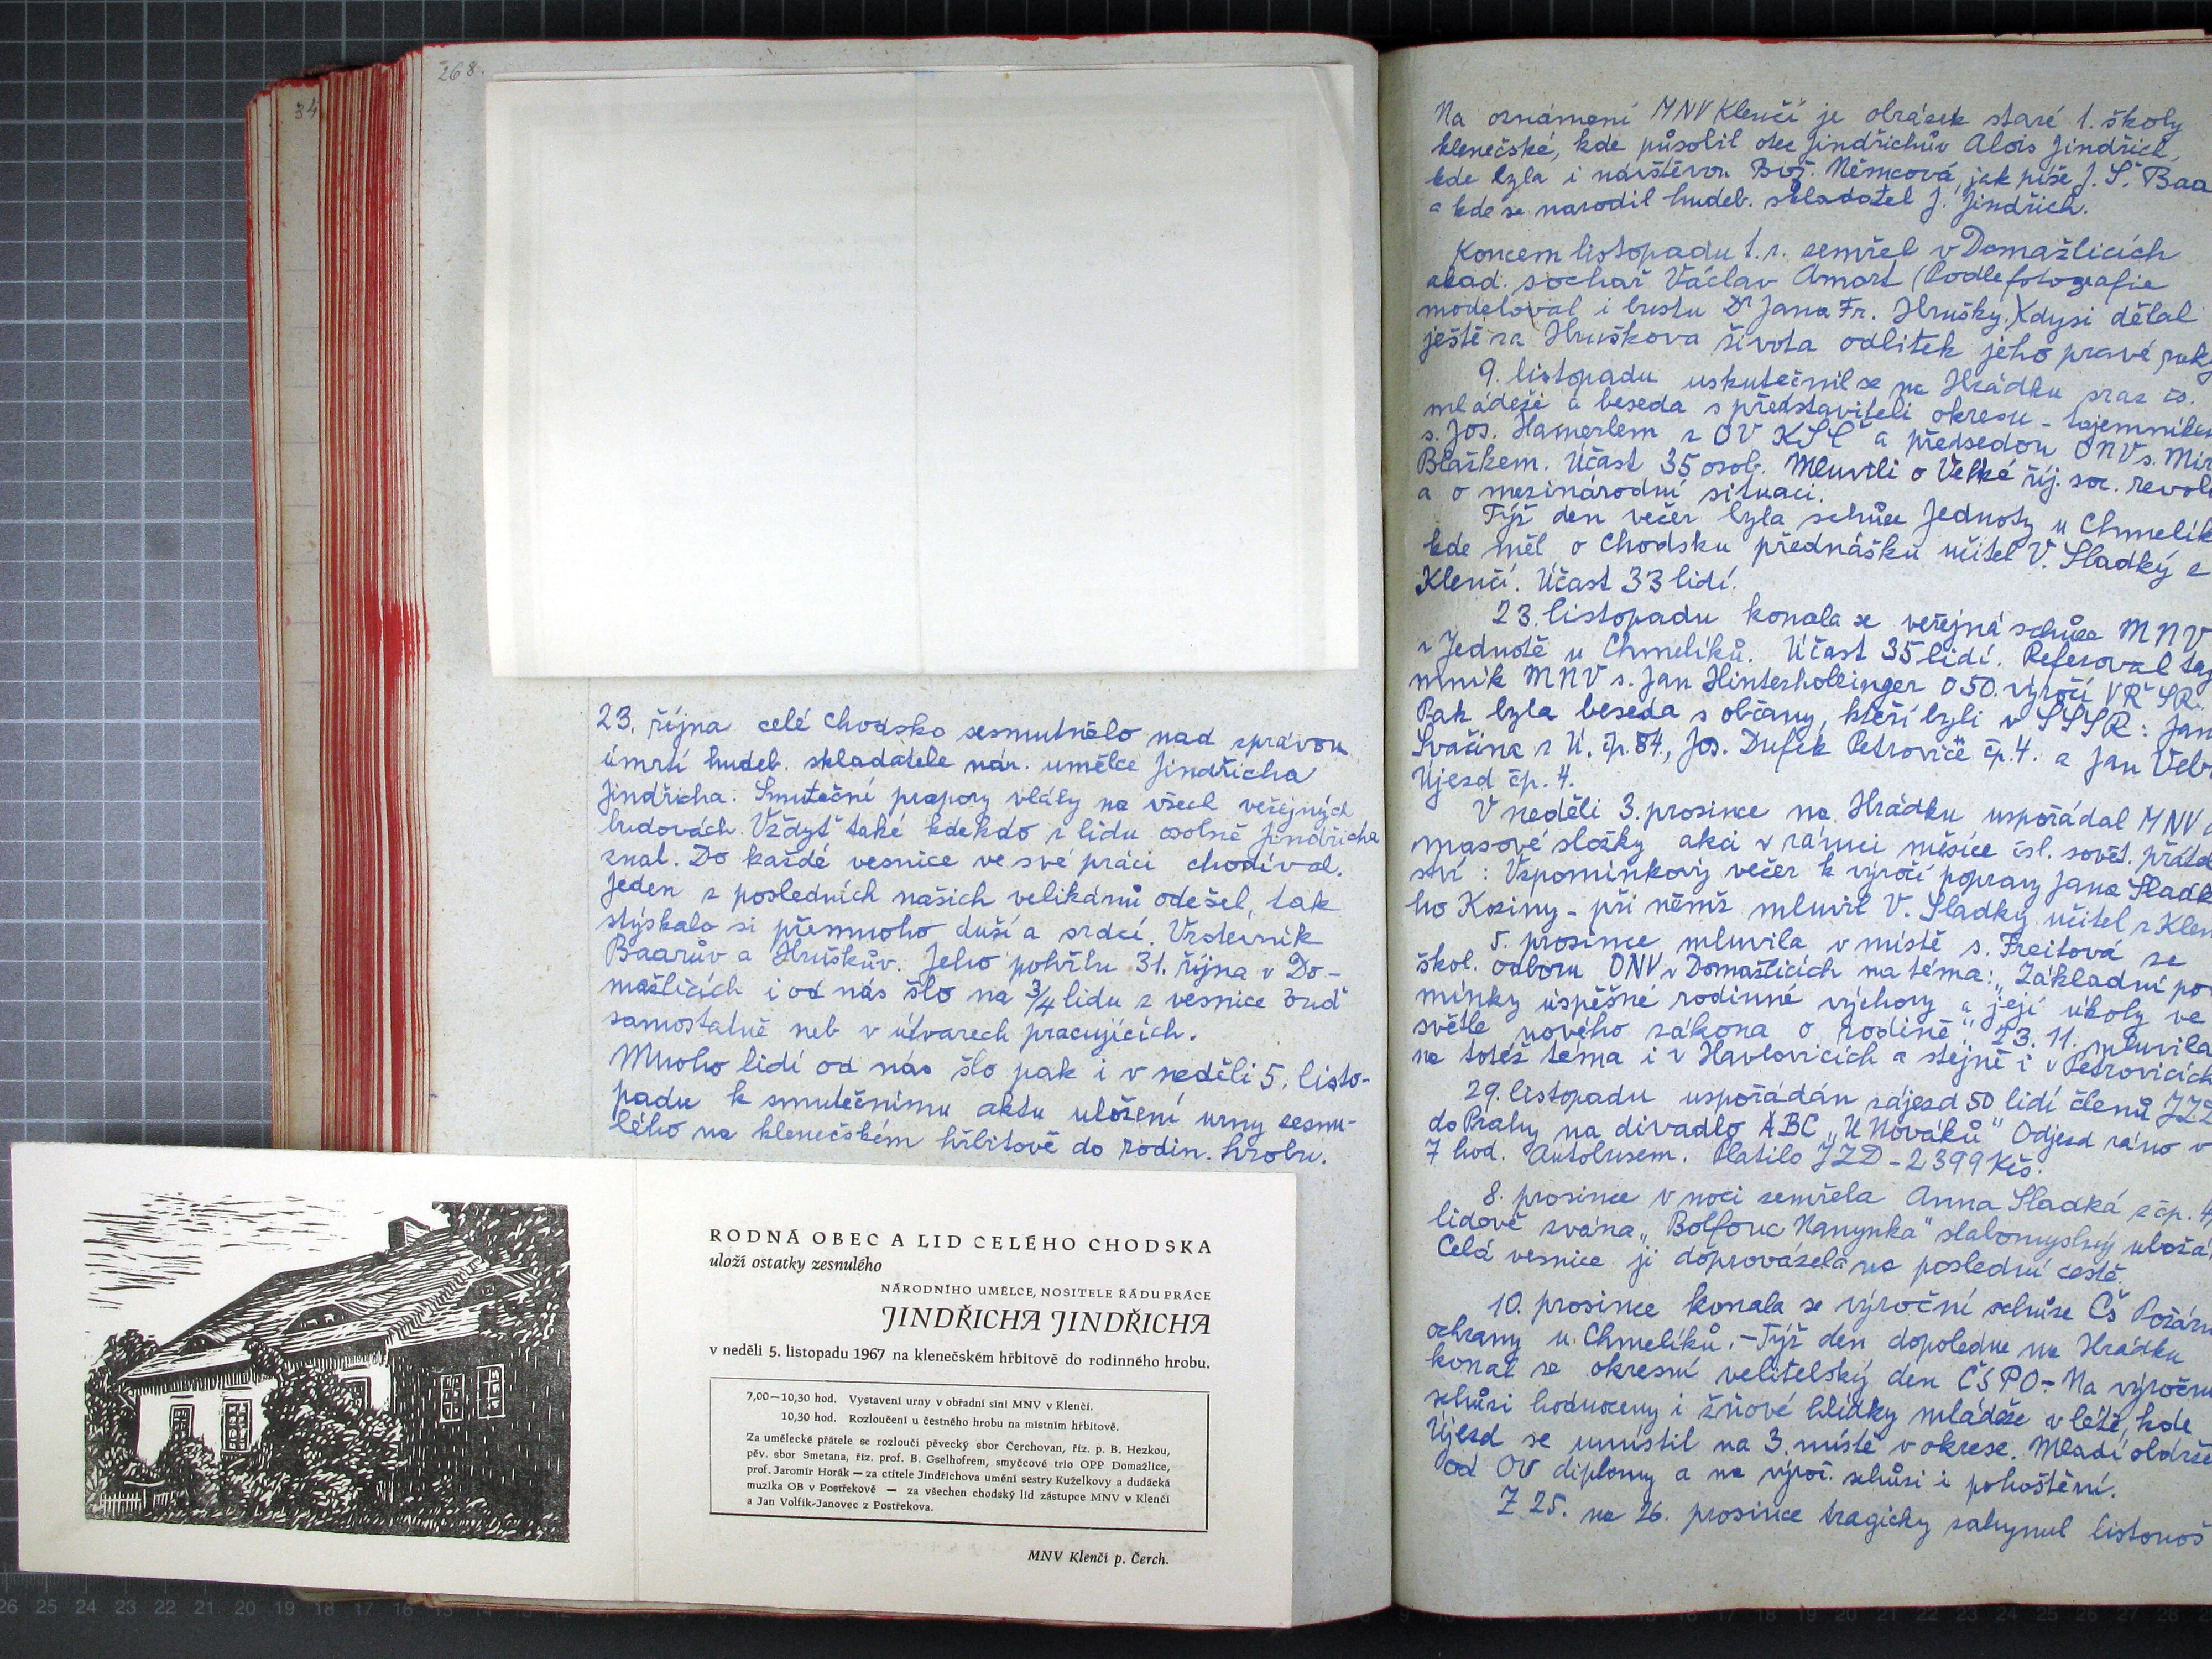 268.
34
23. října celé Chodsko sesmutnělo nad zprávou
úmrtí hudeb. skladatele nár. umělce Jindřicha
Jindřicha. Smuteční prapory vlály na všech veřejných
budovách. Vždyť také kdekdo z lidu osobně Jindřicha
znal. Do každé vesnice ve své práci chodíval.
Jeden z posledních našich velikánů odešel, tak
stýskalo si přemnoho duší a srdcí. Vrstevník
Baarův a Hruškův. Jeho pohřbu 31. října v Do-
mažlicích i od nás šlo na 3/4 lidu z vesnice buď
samostatně neb v útvarech pracujících.
Mnoho lidí od nás šlo pak i v neděli 5. listo-
padu k smutečnímu aktu uložení urny zesnu-
lého na klenečském hřbitově do rodin. hrobu.
RODNÁ OBEC A LID CELÉHO CHODSKA
uloží ostatky zesnulého
NÁRODNÍHO UMĚLCE, NOSITELE ŘÁDU PRÁCE
JINDŘICHA JINDŘICHA
v neděli 5. listopadu 1967 na klenečském hřbitově do rodinného hrobu.
7,00—10,30 hod. Vystavení urny v obřadní síni MNV v Klenčí.
10,30 hod. Rozloučení u čestného hrobu na místním hřbitově.
Za umělecké přátele se rozloučí pěvecký sbor Čerchovan, říz. p. B. Hezkou,
pěv. sbor Smetana, říz. prof. B. Gselhofrem, smyčcové trio OPP Domažlice,
prof. Jaromír Horák — za ctitele Jindřichova umění sestry Kuželkovy a dudácká
muzika OB v Postřekově — za všechen chodský lid zástupce MNV v Klenčí
a Jan Volfík-Janovec z Postřekova.
MNV Klenčí p. Čerch.
Na oznámení MNV Klenčí je obrázek staré 1. školy
klenečské, kde působil otec Jindřichův Alois Jindřich,
kde byla i návštěvou Bož. Němcová, jak píše J. Š. Baa
a kde se narodil hudeb. skladatel J. Jindřich.
Koncem listopadu t. r. zemřel v Domažlicích
akad. sochař Václav Amort (Podle fotografie
modeloval i bustu Dr Jana Fr. Hrušky. Kdysi dělal
ještě za Hruškova života odlitek jeho pravé ruky
9. listopadu uskutečnil se na Hrádku sraz čs.
mládeže a beseda s představiteli okresu - tajemníkem
s. Jos. Hamerlem z OV KSČ a předsedou ONV s. Mir
Blažkem. Účast 35 osob. Mluvili o Velké říj. soc. revolu
a o mezinárodní situaci.
Týž den večer byla schůze Jednoty u Chmelík
kde měl o Chodsku přednášku učitel V. Sladký z
Klenčí. Účast 33 lidí.
23. listopadu konala se veřejná schůze MNV
v Jednotě u Chmelíků. Účast 35 lidí. Referoval taj
mník MNV s. Jan Hinterhollinger o 50. výročí VŘSR.
Pak byla beseda s občany, kteří byli v SSSR: Jan
Svačina z Ú. čp. 84, Jos. Dufek Petrovice čp. 4. a Jan Veb
Újezd čp. 4.
V neděli 3. prosince na Hrádku uspořádal MNV a
masové složky akci v rámci měsíce čsl. sovět. přátel
ství: Vzpomínkový večer k výročí popravy Jana Sladk
ho Koziny - při němž mluvil V. Sladký učitel z Klen
5. prosince mluvila v místě s. Freitová ze
škol. odboru ONV v Domažlicích na téma: „Základní po
mínky úspěšné rodinné výchovy a její úkoly ve
světle nového zákona o rodině". 23. 11. mluvila
na totéž téma i v Havlovicích a stejně i v Petrovicích
29. listopadu uspořádán zájezd 50 lidí členů JZD
do Prahy na divadlo ABC „U Nováků" Odjezd ráno v
7 hod. Autobusem. Platilo JZD - 2399 Kčs.
8. prosince v noci zemřela Anna Sladká z čp. 4,
lidově zvaná „Bolfouc Nanynka" slabomyslný ubožá
Celá vesnice ji doprovázela na poslední cestě.
10. prosince konala se výroční schůze ČS Požárn
ochrany u Chmelíků. - Týž den dopoledne na Hrádku
konal se okresní velitelský den ČSPO - Na výroční
schůzi hodnoceny i žňové hlídky mládeže v létě, kde
Újezd se umístil na 3. místě v okrese. Mladí obdrže
od OV diplomy a na výroč. schůzi i pohoštění.
Z 25. na 26. prosince tragicky zahynul listonoš